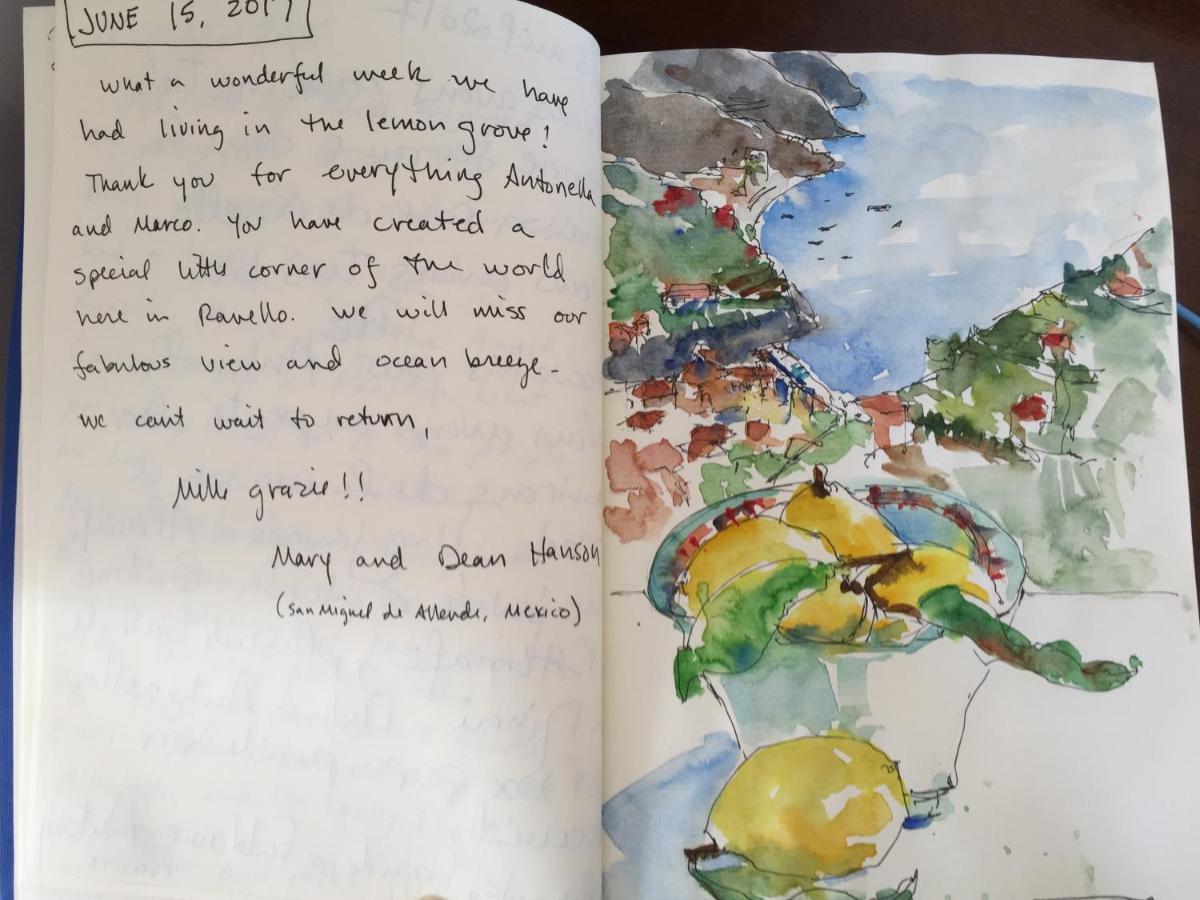 JUNE 15, 2017
What a wonderful week we have
had living in the lemon grove!
Thank you for everything Antonella
and Marco. You have created a
special little corner of the world
here in Ravello. We will miss our
fabulous view and ocean breeze.
We can't wait to return,
Mille grazie!!
Mary and Dean Hanson
(San Miguel de Allende, Mexico)